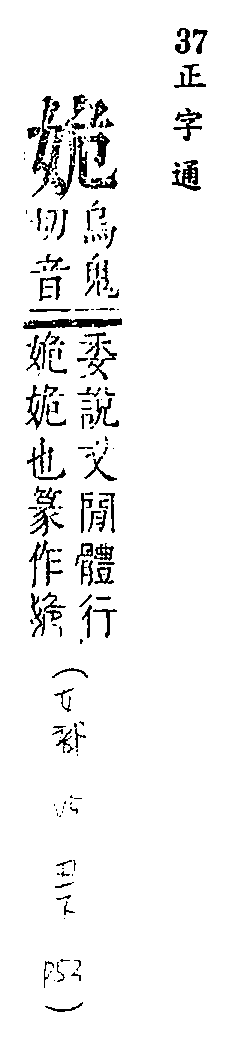 37
正字通
姽
烏鬼
切音
委說文閒體行
姽姽也篆作
(女部 VS 丑下 P52)